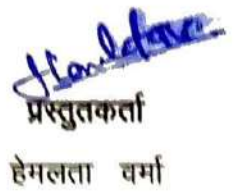 प्रस्तुतकर्ता
हेमलता वर्मा